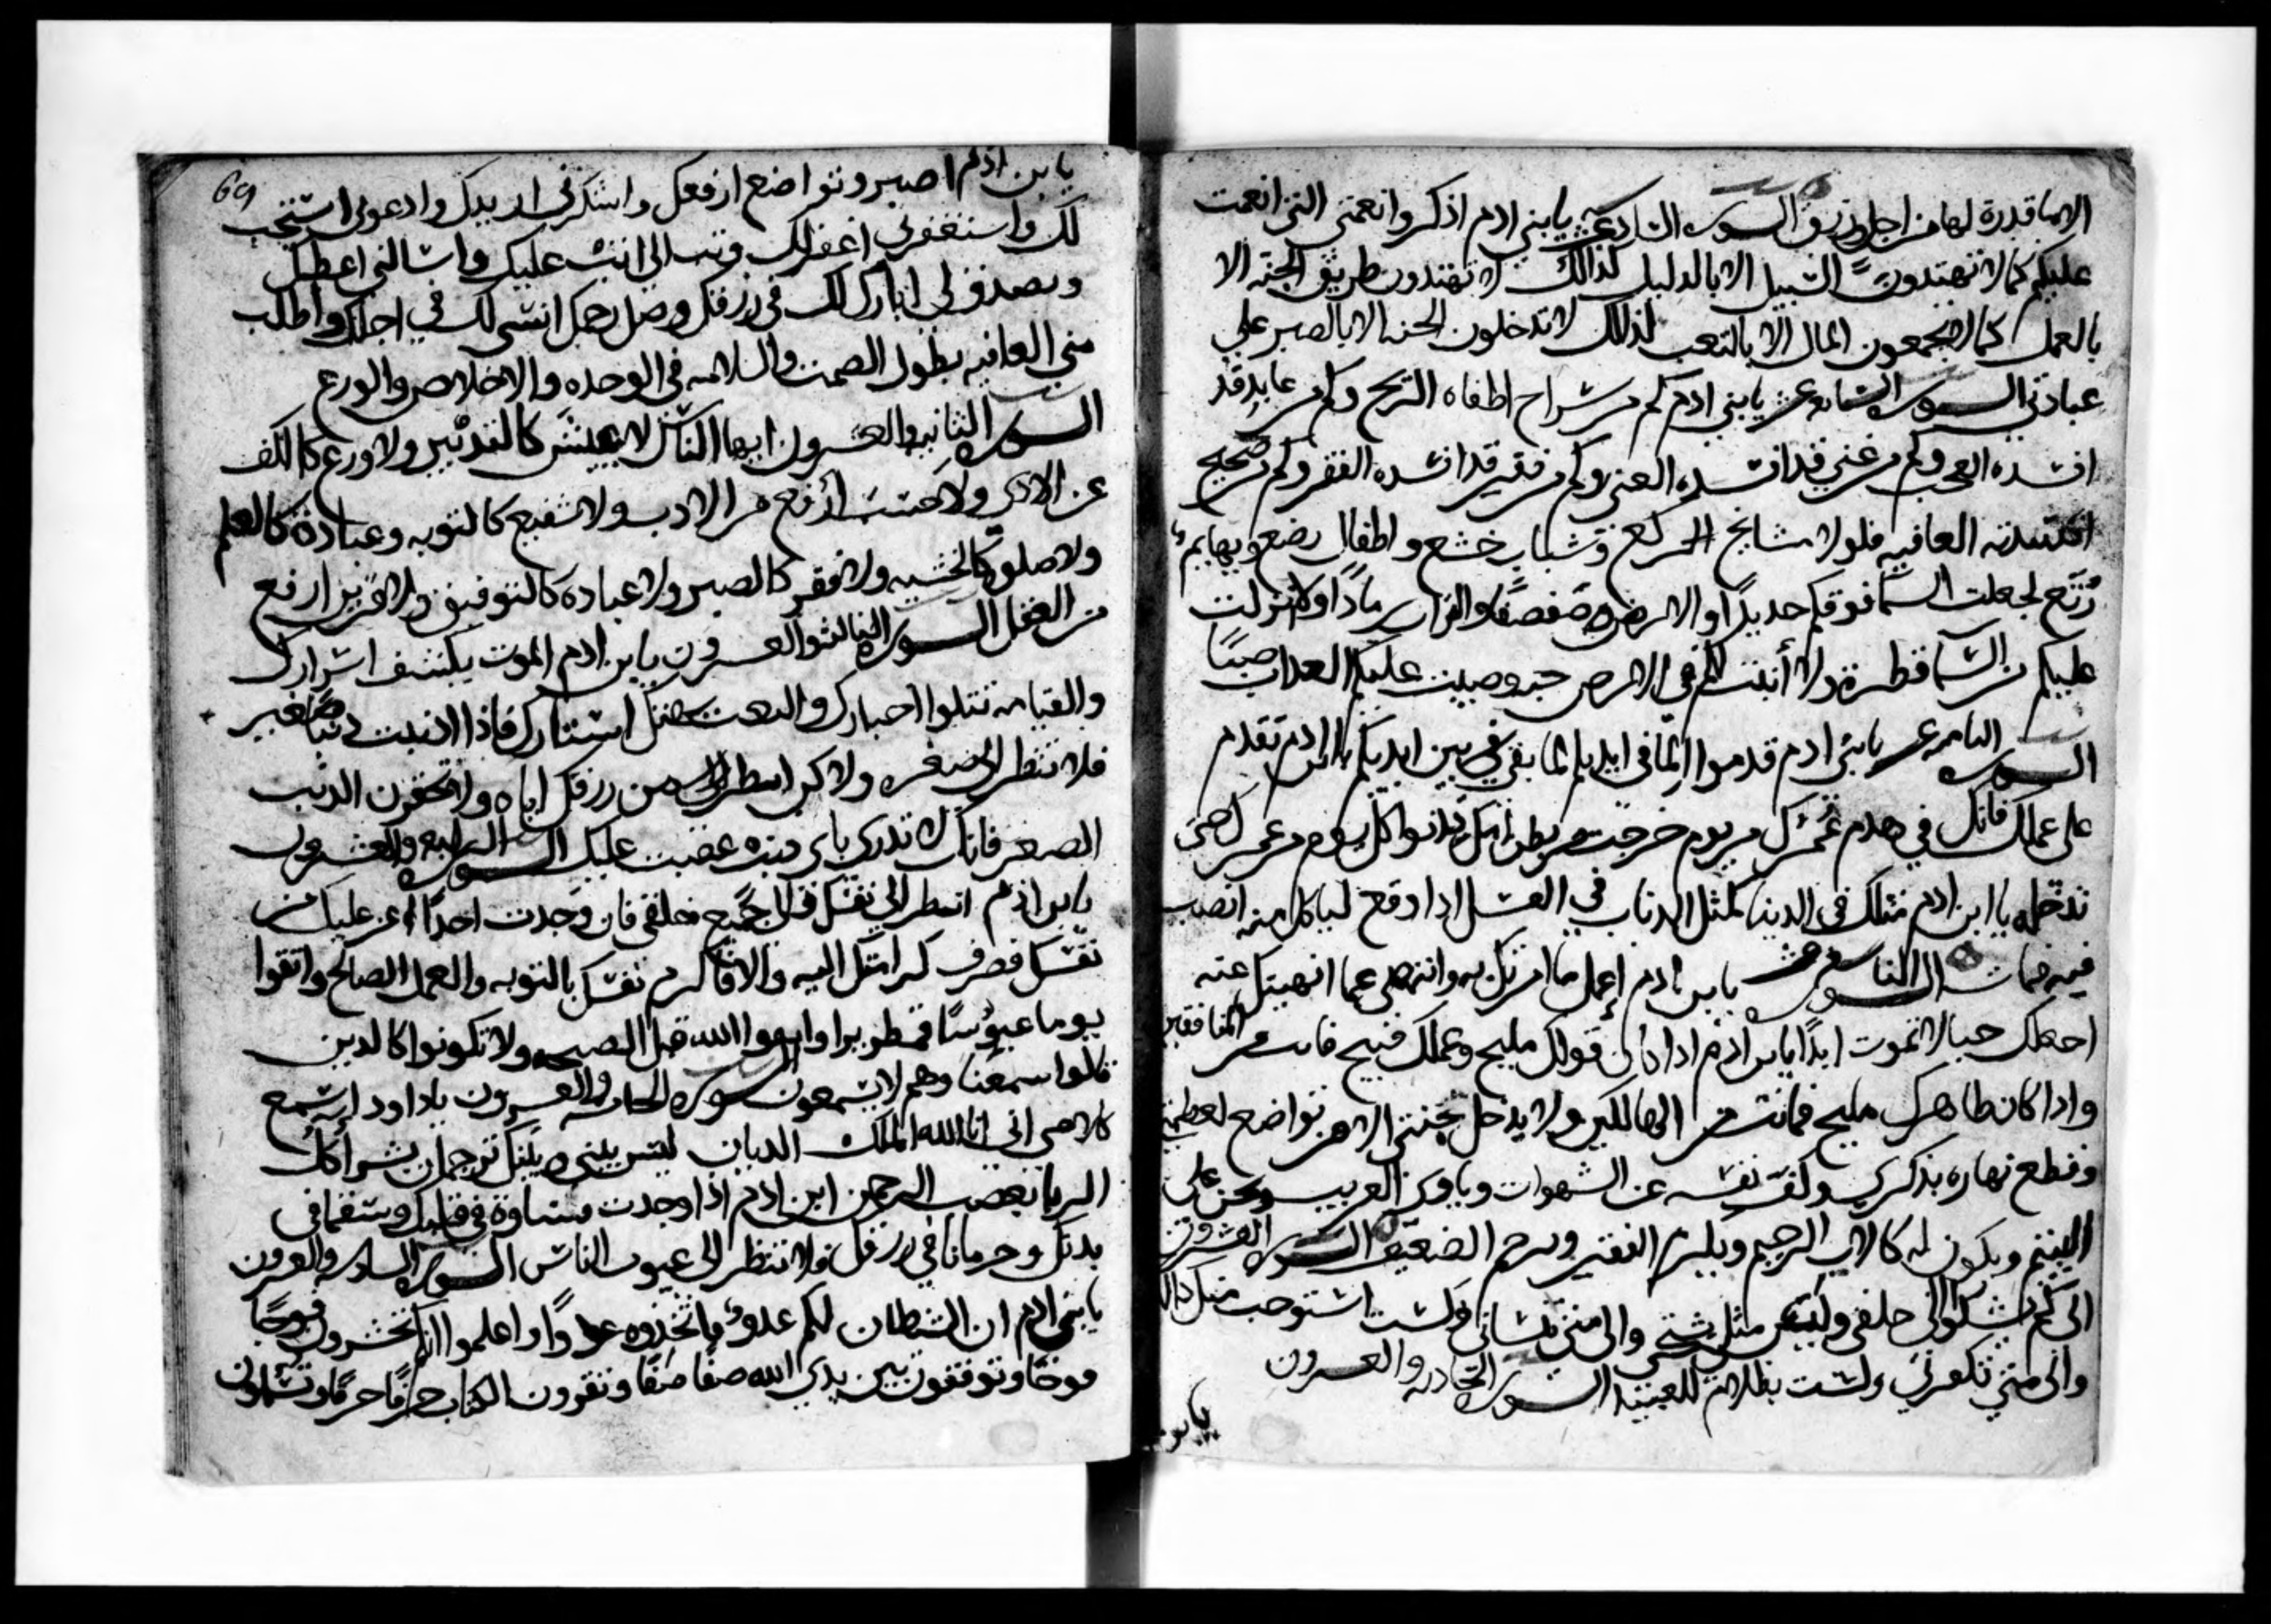 الا بما قدرة لها من اجل ورزق السوره السادسه عشر يا بني ادم اذكروا نعمتي التي انعمت
عليكم كما لا تهتدون السبيل الا بالدليل كذالك لا تهتدون طريق الجنه الا
بالعمل كما لا تجمعون المال الا بالتعب كذالك لا تدخلون الجنه الا بالصبر علي
عبادتي السوره السابعه عشر يا بني ادم كم من سراج اطفاه الريح وكم من عابد قد
افسده العجب وكم من غني قد افسده الغنى وكم من فقير قد افسده الفقر وكم من صحيح
افسدته العافيه فلولا مشايخ الركع وشباب خشع واطفال رضع وبهايم
رتع لجعلت السما فوقكم حديدًا والارض صفصفًا والتراب رمادًا ولا انزلت
عليكم من السما قطرة ولا أنبت لكم في الارض حبه وصبيت عليكم العداب صبًا
السوره الثامنه عشر يا بني ادم قدموا لما في ايديكم لما بقي في بين ايديكم يا ابن ادم تقدم
على عملك فانك في هدم عمرك من يوم خرجت من بطن امك تدنوا كل يوم من عمرك حتى
تدخله يا ابن ادم مثلك في الدنيا كمثل الدباب في العسل اذا وقع لياكل منه انصب
فيه فمات السوره التاسعه عشر يا بن ادم إعمل ما امرتك به وانتهى عما انهيتك عنه
اجعلك حيا لا تموت ابدًا يا بن ادم ادا كان قولك مليح وعملك قبيح فانت من المنافقين
وادا كان ظاهرك مليح فانت من الهالكين ولا يدخل جنتي الا من تواضع لعظمتي
وقطع نهاره بذكري وكف نفسه عن الشهوات وياوي الغريب ويحن على
اليتيم ويكون له كالاب الرحيم ويكرم الفقير ويرحم الضعيف السوره العشرون
الى كم تشكوا الى خلقي وليس مثلي يشتكي والى متى تنساني ولست استوجب منك دالك
والى متى تكفرني ولست بظلام للعبيد السوره الحاديه والعشرون
يا بن
69
يا بن ادم اصبر وتواضع ارفعك واشكرني ازيدك وادعوني استجب
لك واستغفرني اغفر لك وتب الي اتب عليك واسالني اعطيك
وتصدق لي ابارك لك في رزقك وصل رحمك انسى لك في اجلك واطلب
مني العافيه بطول الصمت والسلامه في الوحده والاخلاص والورع
السوره الثانيه والعشرون ايها الناس لا عيش كالتدبير ولا ورع كالكف
عن الاذى ولا حسب ارفع من الادب ولا شفيع كالتوبه وعبادة كالعلم
ولا صلوة كالخشيه ولا فقر كالصبر ولا عباده كالتوفيق ولا قرين ارفع
من العقل السوره الثالثه والعشرون يا بن ادم الموت يكشف اسرارك
والقيامه تتلوا اخبارك والبعث يهتك استارك فاذا اذنبت ذنبا صغير
فلا تنظر الى صغره ولاكن انظر الى من رزقك اياه ولا تحقرن الذنب
الصغير فانك لا تدري باي ذنب غضبت عليك السوره الرابعه والعشرون
يا بن ادم انظر الى نفسك قبل جميع خلقي فان وجدت احدًا اعز عليك من
نفسك فصرف كرامتك اليه والا فاكرم نفسك بالتوبه والعمل الصالح واتقوا
يوما عبوسًا قمطريرا الله قبل ولا تكونوا كالدين
قالوا سمعنا وهم لا يسمعون السوره الخامسه والعشرون يا داود إسمع
كلامي اني انا الله الملك الديان ليس بيني وبينك ترجمان بشر
الرحمن ابن ادم اذا وجدت قساوة في قلبك وسقما في
بدنك وحرمانا في رزقك فلا تنظر الى عيوب الناس السوره السادسه والعشرون
يا بني ادم ان الشيطان لكم عدو فاتخذوه عدوًا واعلموا انكم تحشرون فوجًا
فوجًا وتوقفون بين يدي الله صفًا صفًا وتقرون الكتاب حرفًا حرفًا وتسلون